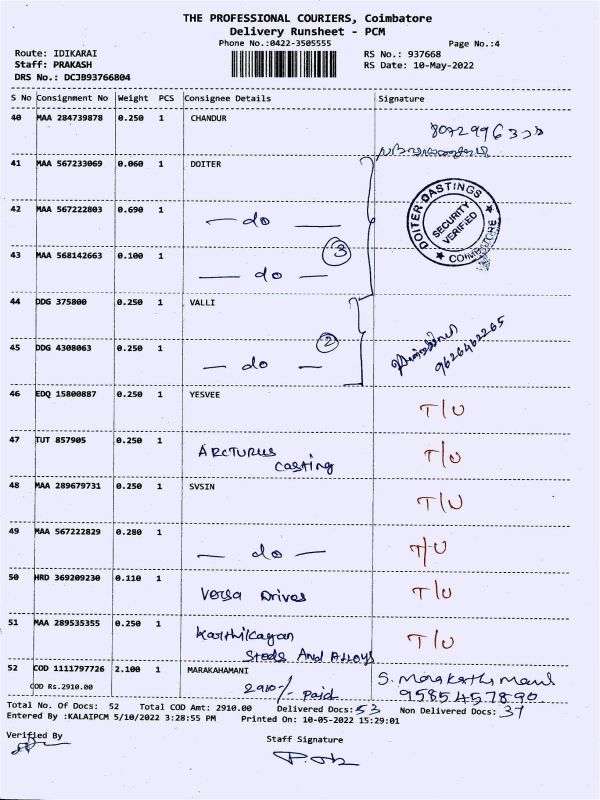 THE PROFESSIONAL COURIERS, Coimbatore
Delivery Runsheet - PCM
Phone No.:0422-3505555
Page No.:4
Route: IDIKARAI
RS No.: 937668
Staff: PRAKASH
RS Date: 10-May-2022
DRS No.: DCJB93766804
S No Consignment No Weight PCS Consignee Details Signature
40 MAA 284739878 0.250 1 CHANDUR
41 MAA 567233069 0.060 1 DOITER
DOITER CASTINGS
SECURITY
VERIFIED
COIMBATORE
42 MAA 567222803 0.690 1
— do —
43 MAA 568142663 0.100 1
3
— do —
44 DDG 375800 0.250 1 VALLI
9626462265
45 DDG 4308063 0.250 1
2
— do —
46 EDQ 15800887 0.250 1 YESVEE
T/U
47 TUT 857905 0.250 1
ARCTURUS T/U
casting
48 MAA 289679731 0.250 1 SVSIN
T/U
49 MAA 567222829 0.280 1
— do — T/U
50 HRD 369209230 0.110 1
Versa Drives T/U
51 MAA 289535355 0.250 1
Karthikayan T/U
Steels And Alloys
52 COD 1111797726 2.100 1 MARAKAHAMANI
S. Marakatha Mani
COD Rs.2910.00 2910/- Paid 9585457890
Total No. Of Docs: 52 Total COD Amt: 2910.00 Delivered Docs: 53 Non Delivered Docs: 37
Entered By :KALAIPCM 5/10/2022 3:28:55 PM Printed On: 10-05-2022 15:29:01
Verified By
Staff Signature